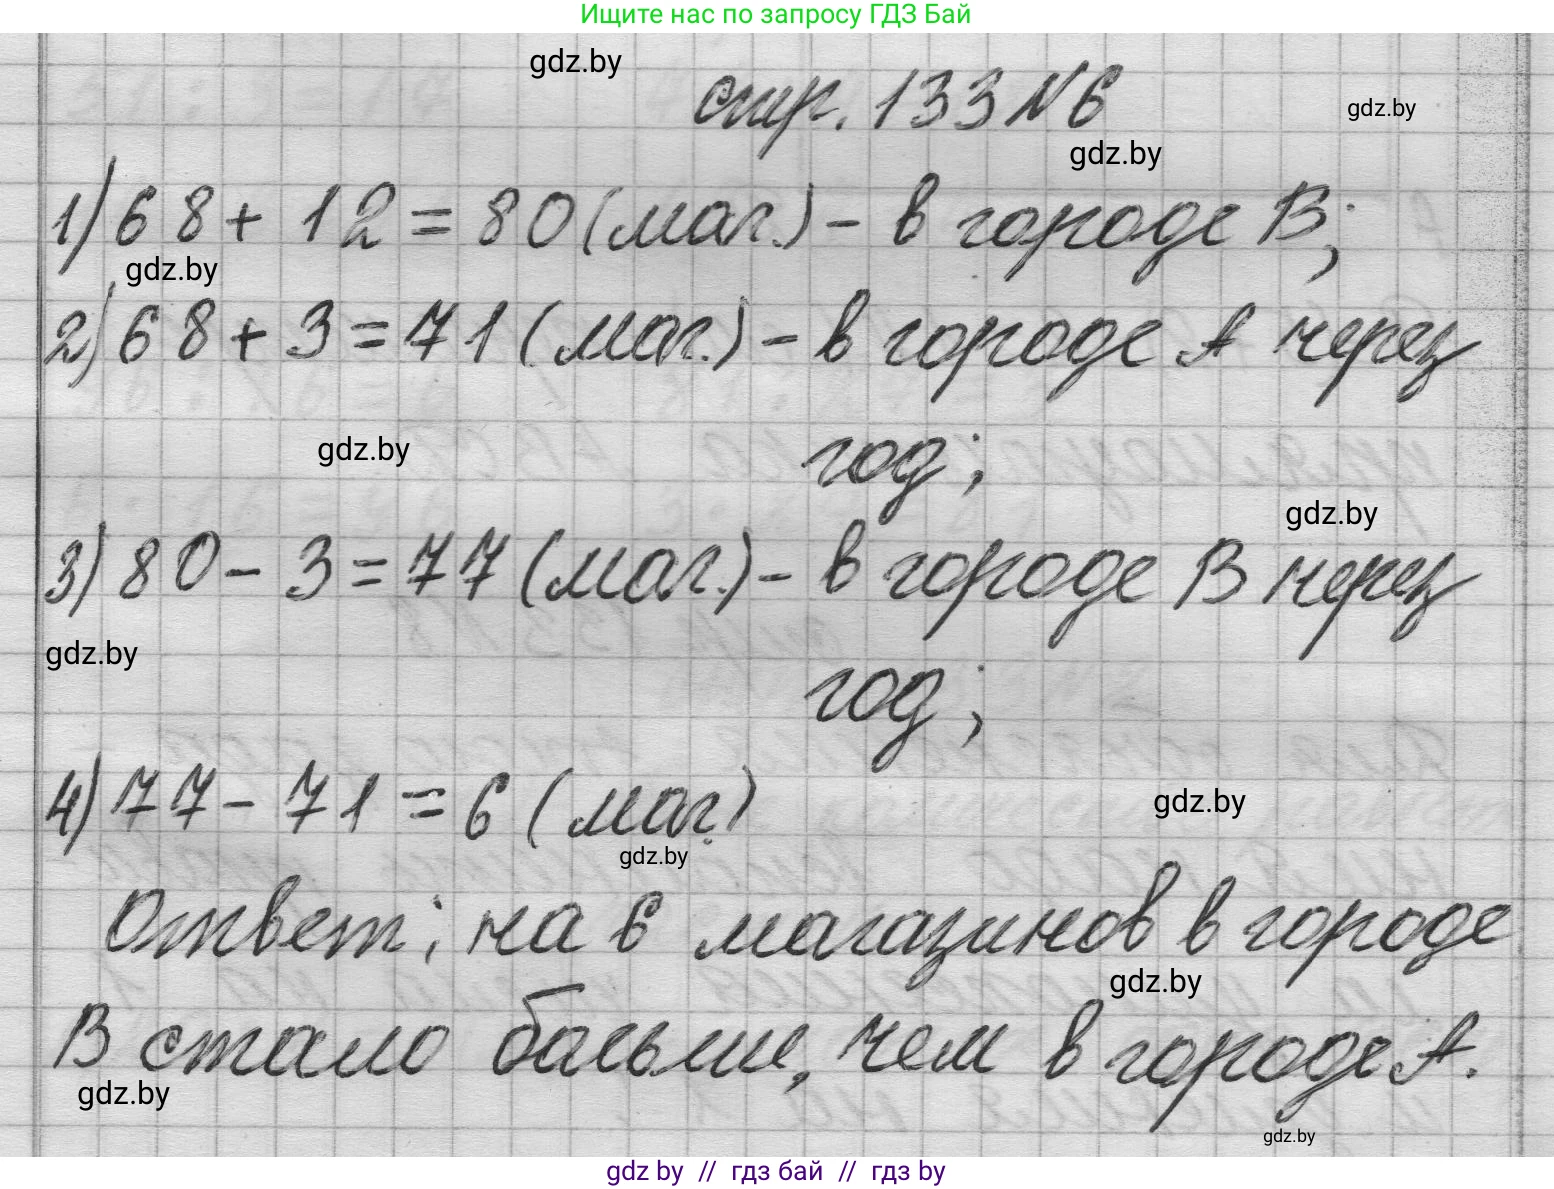 Ищите нас по запросу ГДЗ Бай
gdz.by
стр. 133 № 6
gdz.by
gdz.by
1) 68 + 12 = 80 (маг.) - в городе В;
gdz.by
2) 68 + 3 = 71 (маг.) - в городе А через
год;
gdz.by
gdz.by
3) 80 - 3 = 77 (маг.) - в городе В через
gdz.by
год;
4) 77 - 71 = 6 (маг.)
gdz.by
gdz.by
Ответ: на 6 магазинов в городе
gdz.by
В стало больше, чем в городе А.
gdz.by
gdz.by
gdz by // гдз бай // гдз by